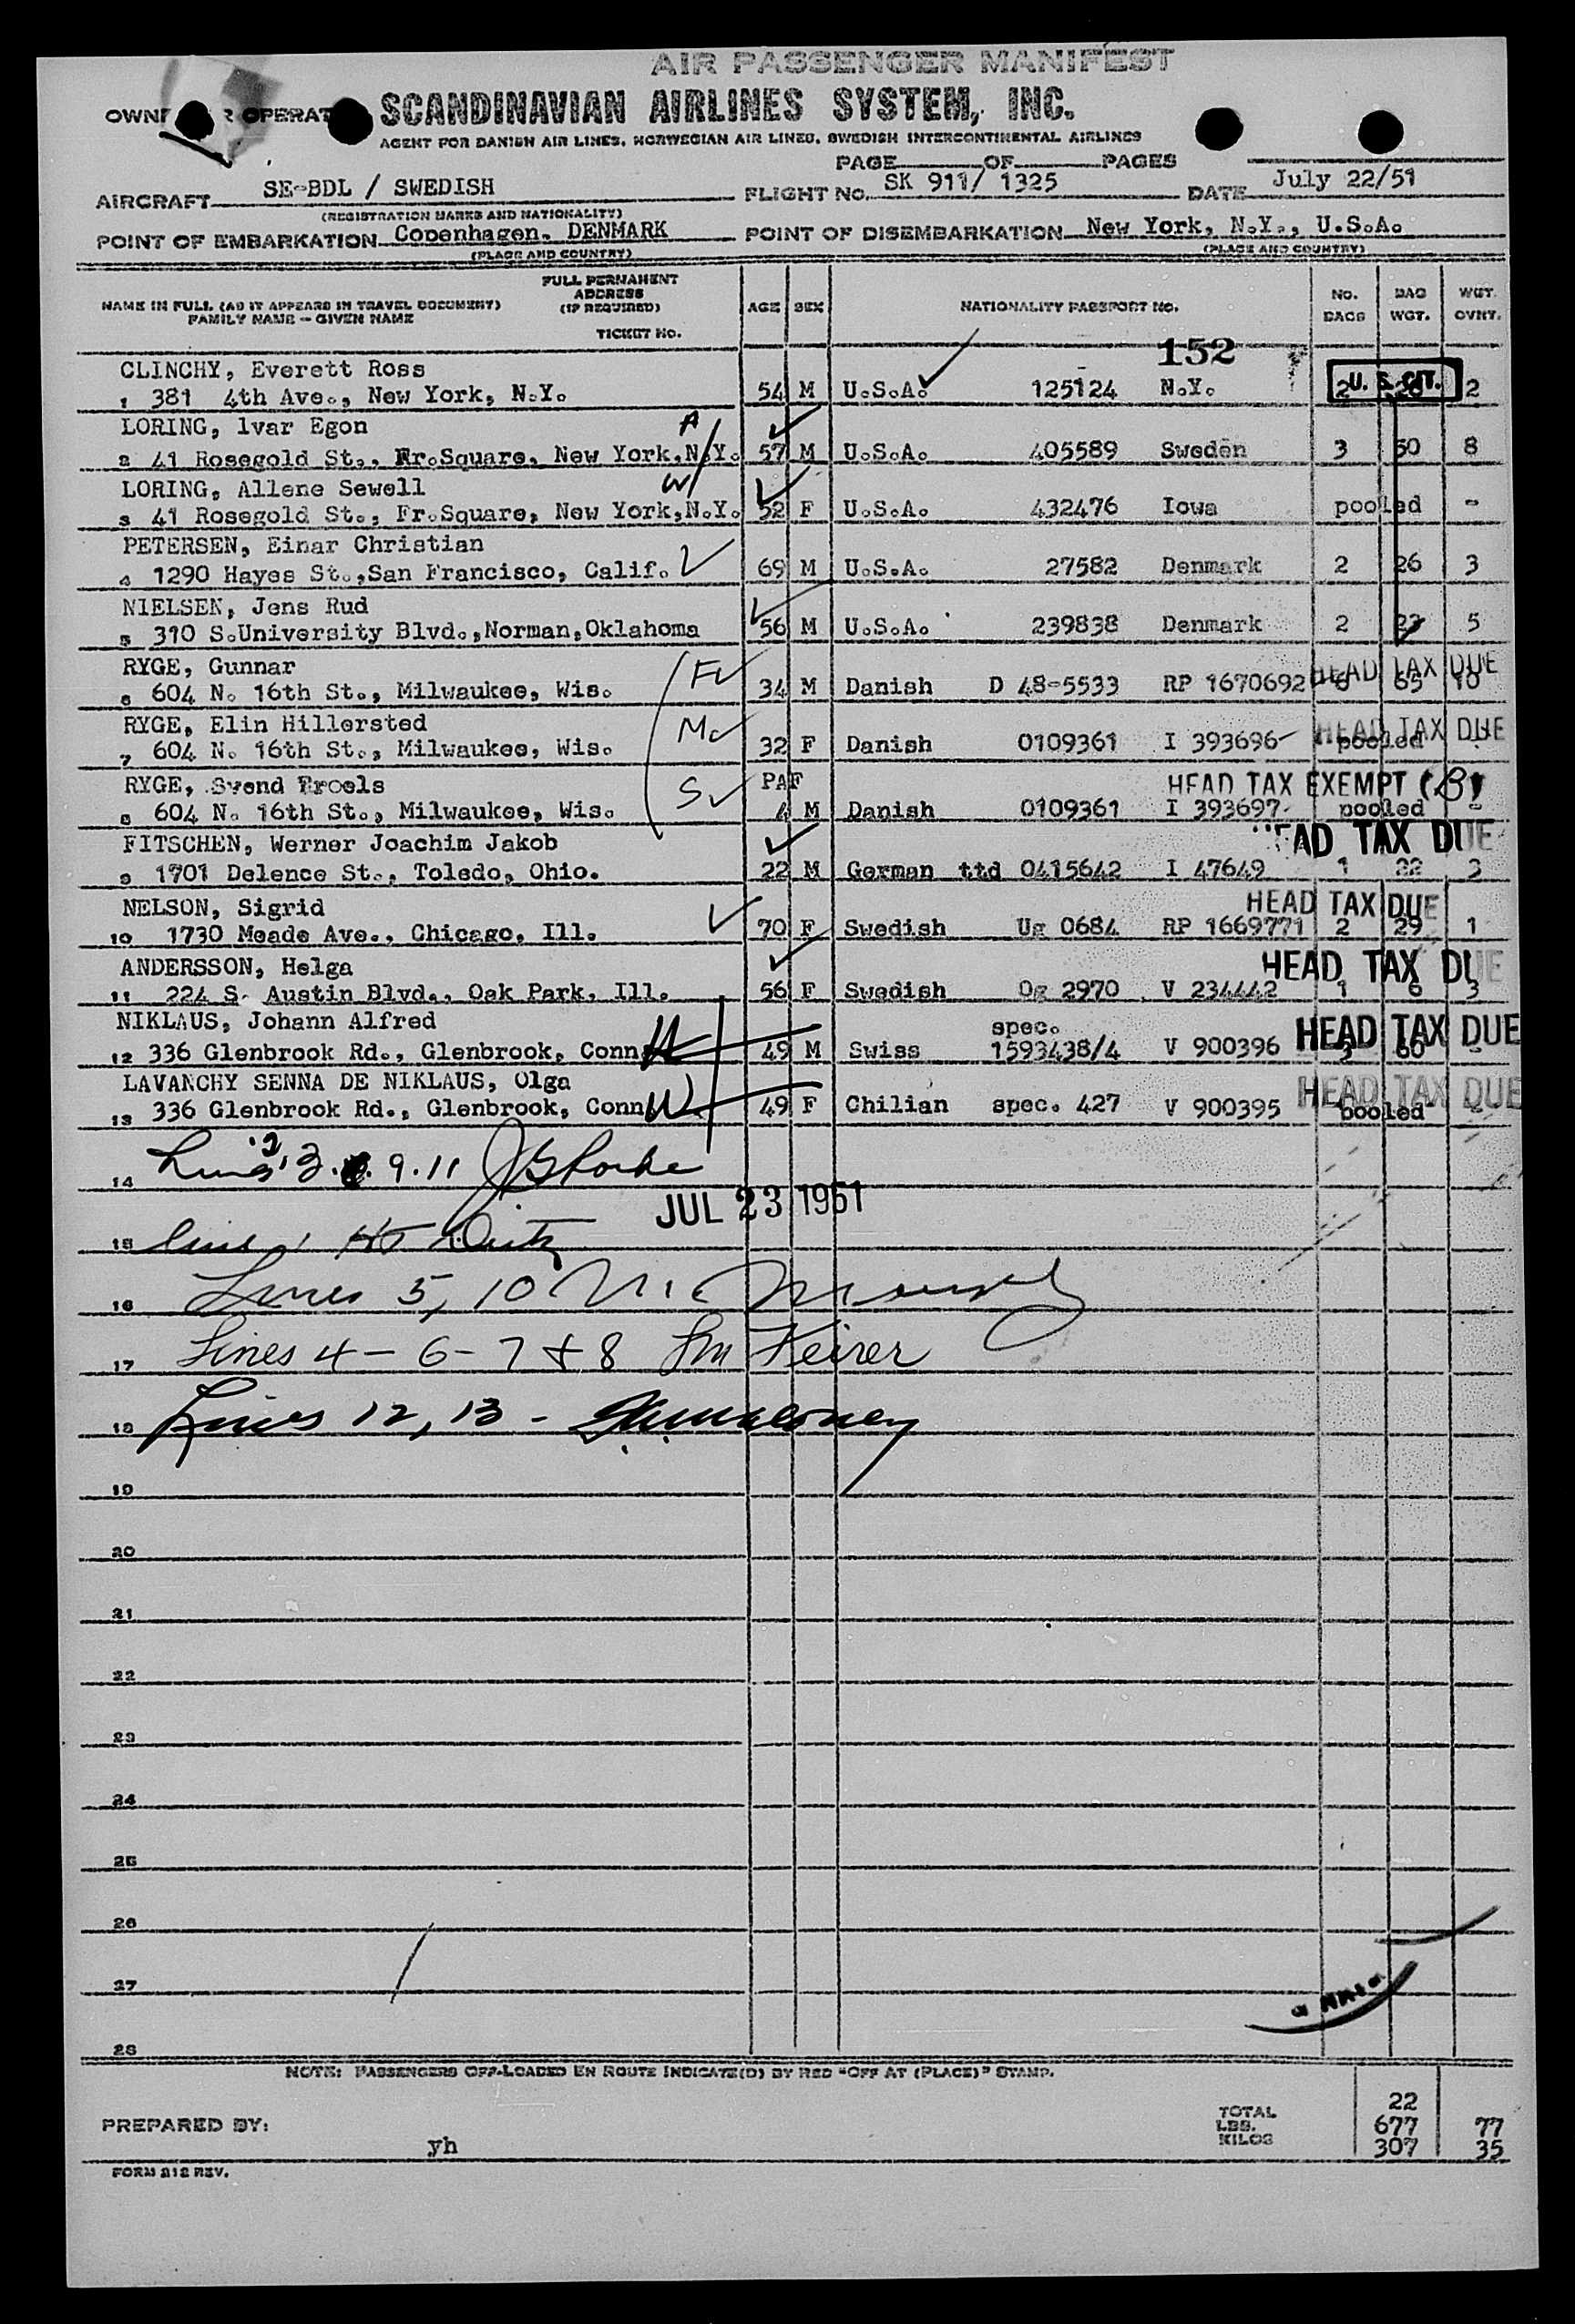 AIR PASSENGER MANIFEST
SCANDINAVIAN AIRLINES SYSTEM, INC.
AGENT FOR DANISH AIR LINES, NORWEGIAN AIR LINES, SWEDISH INTERCONTINENTAL AIRLINES
PAGE OF PAGES
AIRCRAFT SE-BDL / SWEDISH FLIGHT NO. SK 911/ 1325 DATE July 22/51
(REGISTRATION MARKS AND NATIONALITY)
POINT OF EMBARKATION Copenhagen, DENMARK POINT OF DISEMBARKATION New York, N.Y., U.S.A.
(PLACE AND COUNTRY) (PLACE AND COUNTRY)
NAME IN FULL (AS IT APPEARS IN TRAVEL DOCUMENT) FAMILY NAME - GIVEN NAME FULL PERMANENT ADDRESS (IF REQUIRED) TICKET NO. AGE SEX NATIONALITY PASSPORT NO. NO. BAGS BAG WGT. WGT. OVHT.
152
CLINCHY, Everett Ross
1 381 4th Ave., New York, N.Y. 54 M U.S.A. 125124 N.Y. 2 U. S. CIT. 2
LORING, lvar Egon A
2 41 Rosegold St., Fr.Square, New York,N.Y. 57 M U.S.A. 405589 Sweden 3 50 8
LORING, Allene Sewell W
3 41 Rosegold St., Fr.Square, New York,N.Y. 52 F U.S.A. 432476 Iowa pooled -
PETERSEN, Einar Christian
4 1290 Hayes St.,San Francisco, Calif. 69 M U.S.A. 27582 Denmark 2 26 3
NIELSEN, Jens Rud
5 310 S.University Blvd.,Norman,Oklahoma 56 M U.S.A. 239838 Denmark 2 23 5
RYGE, Gunnar F HEAD TAX DUE
6 604 N. 16th St., Milwaukee, Wis. 34 M Danish D 48-5533 RP 1670692 6 65 10
RYGE, Elin Hillersted M HEAD TAX DUE
7 604 N. 16th St., Milwaukee, Wis. 32 F Danish 0109361 I 393696 pooled -
RYGE, Svend Troels S PAF HEAD TAX EXEMPT (B)
8 604 N. 16th St., Milwaukee, Wis. 4 M Danish 0109361 I 393697 pooled -
FITSCHEN, Werner Joachim Jakob HEAD TAX DUE
9 1701 Delence St., Toledo, Ohio. 22 M German ttd 0415642 I 47649 1 22 3
NELSON, Sigrid HEAD TAX DUE
10 1730 Meade Ave., Chicago, Ill. 70 F Swedish Ug 0684 RP 1669771 2 29 1
ANDERSSON, Helga HEAD TAX DUE
11 224 S. Austin Blvd., Oak Park, Ill. 56 F Swedish Og 2970 V 234442 1 6 3
NIKLAUS, Johann Alfred spec. HEAD TAX DUE
12 336 Glenbrook Rd., Glenbrook, Conn. H 49 M Swiss 1593438/4 V 900396 3 60 -
LAVANCHY SENNA DE NIKLAUS, Olga HEAD TAX DUE
13 336 Glenbrook Rd., Glenbrook, Conn. W 49 F Chilian spec. 427 V 900395 pooled -
14 Lines 2, 3. 9. 11
JUL 23 1951
15 Line 1
16 Lines 5, 10
17 Lines 4 - 6 - 7 + 8
18 Lines 12, 13 -
19
20
21
22
23
24
25
26
27
28
NOTE: PASSENGERS OFF-LOADED EN ROUTE INDICATE(D) BY RED "OFF AT (PLACE)" STAMP.
TOTAL 22
PREPARED BY: LBS. 677 77
yh KILOS 307 35
FORM 212 REV.